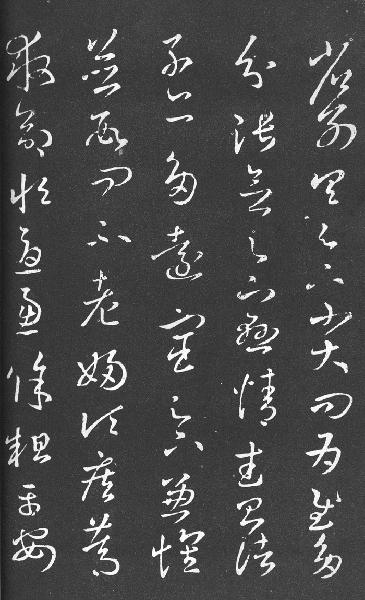 省別具足下小大問為慰多
分張念足下懸情武昌諸
子亦多遠宦足下兼懷
並數問不老婦頃疾篤
救命恒憂慮餘粗平安